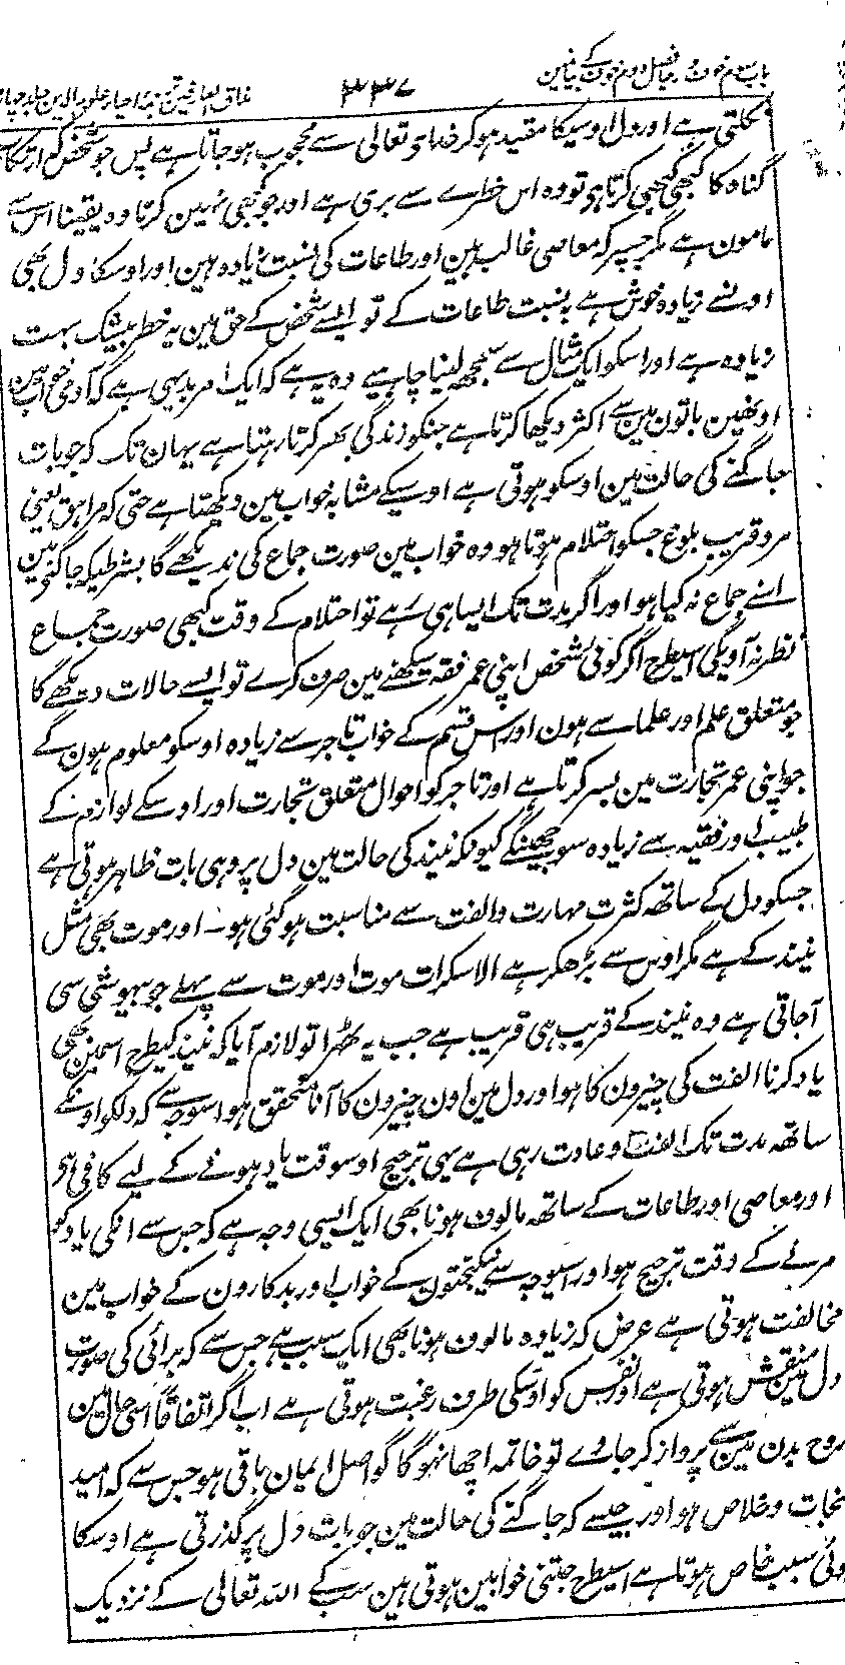 باب سوم خوف و رجا فصل دوم خوف کے بیانمین ۳۳۷ مذاق العارفین ترجمہ احیاء علوم الدین جلد چہارم
نکلتی ہے اور دل اوسیکا مقید ہو کر خداے تعالی سے محجوب ہو جاتا ہے پس جو شخص کہ ارتکاب
گناہ کا کبھی کبھی کرتا ہو تو وہ اس خطرے سے بری ہے اور جو کبھی نہین کرتا وہ یقینا اس سے
مامون ہے مگر جسپر کہ معاصی غالب ہین اور طاعات کی نسبت زیادہ ہین اور اوسکا دل بھی
اونسے زیادہ خوش ہے بہ نسبت طاعات کے تو ایسے شخص کے حق مین یہ خطر بیشک بہت
زیادہ ہے اور اسکو ایک مثال سے سمجھہ لینا چاہیے وہ یہ ہے کہ ایک امر بدیہی ہے کہ آدمی خواب مین
اونھین باتون مین سے اکثر دیکھا کرتا ہے جنکو زندگی بھر کرتا رہتا ہے یہان تک کہ جو بات
جاگنے کی حالت مین اوسکو ہوتی ہے اوسیکے مشابہ خواب مین دیکھتا ہے حتی کہ مراہق یعنی
مرد قریب بلوغ جسکو احتلام ہوتا ہو وہ خواب مین صورت جماع کی ندیکھے گا بشرطیکہ جاگنے مین
اسنے جماع نہ کیا ہو اور اگر مدت تک ایسا ہی رہے تو احتلام کے وقت کبھی صورت جماع
نظر نہ آویگی اسیطرح اگر کوئی شخص اپنی عمر فقہ سیکھنے مین صرف کرے تو ایسے حالات دیکھے گا
جو متعلق علم اور علما سے ہون اور اس قسم کے خواب تاجر سے زیادہ اوسکو معلوم ہون گے
جو اپنی عمر تجارت مین بسر کرتا ہے اور تاجر کو احوال متعلق تجارت اور اوسکے لوازم کے
طبیب اور فقیہ سے زیادہ سوجھینگے کیونکہ نیند کی حالت مین دل پر وہی بات ظاہر ہوتی ہے
جسکو دل کے ساتھہ کثرت مہارت والفت سے مناسبت ہو گئی ہو۔ اور موت بھی مثل
نیند کے ہے مگر اوس سے بڑھکر ہے الا سکرات موت اور موت سے پہلے جو بیہوشی سی
آجاتی ہے وہ نیند کے قریب ہی قریب ہے جب یہ ٹھہرا تو لازم آیا کہ نیند کیطرح اسمین بھی
یاد کرنا الفت کی چیزون کا ہو اور دل مین اون چیزون کا آنا متحقق ہو اسوجہ سے کہ دلکو اونکے
ساتھہ مدت تک الفت و عادت رہی ہے یہی ترجیح اوسوقت یاد ہونے کے لیے کافی ہو
اور معاصی اور طاعات کے ساتھہ مالوف ہونا بھی ایک ایسی وجہ ہے کہ جس سے انکی یاد کو
مرنے کے وقت ترجیح ہو اور اسیوجہ سے نیکبختون کے خواب اور بدکارون کے خواب مین
مخالفت ہوتی ہے غرض کہ زیادہ مالوف ہونا بھی ایک سبب ہے جس سے کہ برائی کی صورت
دل مین منقش ہوتی ہے اور نفس کو اوسکی طرف رغبت ہوتی ہے اب اگر اتفاقا اسی حال مین
روح بدن مین سے پرواز کر جاوے تو خاتمہ اچھا نہوگا گو اصل ایمان باقی ہو جس سے کہ امید
نجات و خلاص ہو اور جیسے کہ جاگنے کی حالت مین جو بات دل پر گذرتی ہے اوسکا
کوئی سبب خاص ہوتا ہے اسیطرح جتنی خوابین ہوتی ہین سب کے اللہ تعالی کے نزدیک